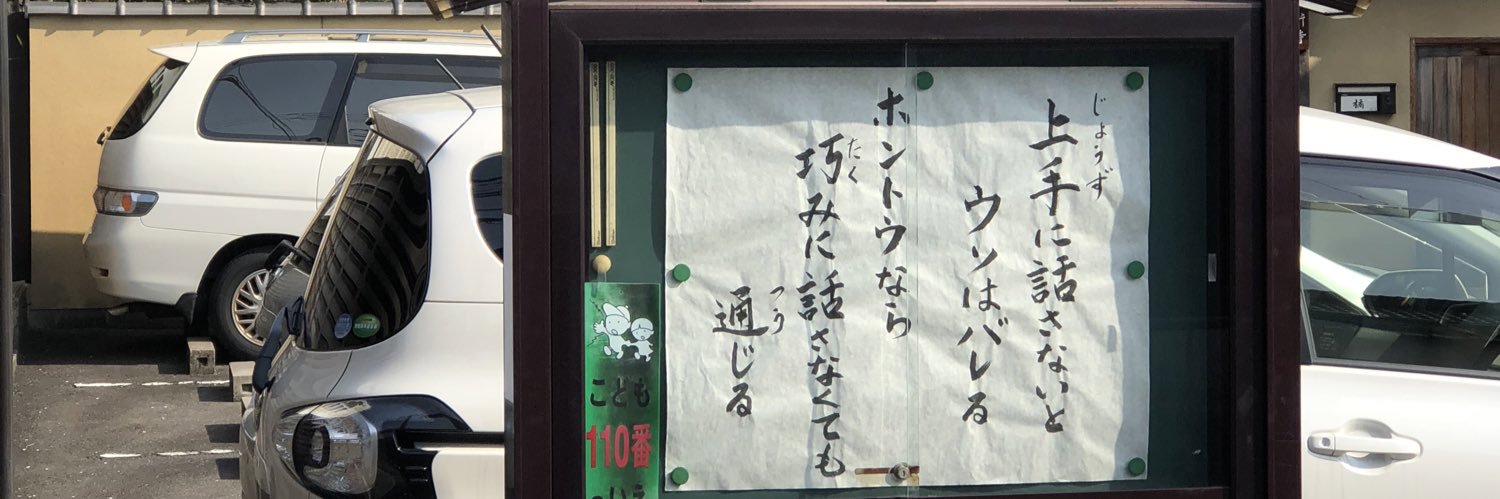 上手に話さないと
じょうず
ウソはバレる
ホントウなら
巧みに話さなくても
たく
通じる
つう
こども
110番
のいえ
橘